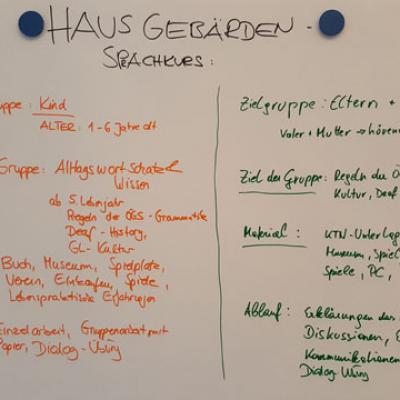 HAUS GEBÄRDEN -
SPRACHKURS:
uppe: Kind
ALTER: 1-6 Jahre alt
Gruppe: Alltagswortschatz
Wissen
ab 5. Lebensjahr
Regeln der ÖGS-Grammatik
Deaf-History,
GL-Kultur
Buch, Museum, Spielplätze,
Verein, Einkaufen, Spiele,
Lebenspraktische Erfahrungen
Einzelarbeit, Gruppenarbeit mit
Papier, Dialog-Übung
Zielgruppe: Eltern +
Vater + Mutter → hörend
Ziel der Gruppe: Regeln der Ö
Kultur, Deaf
Material: KTN-Unterlag
Museum, Spiel
Spiele, PC,
Ablauf: Erklärungen des
Diskussionen, E
Kommunikationen
Dialog-Übung